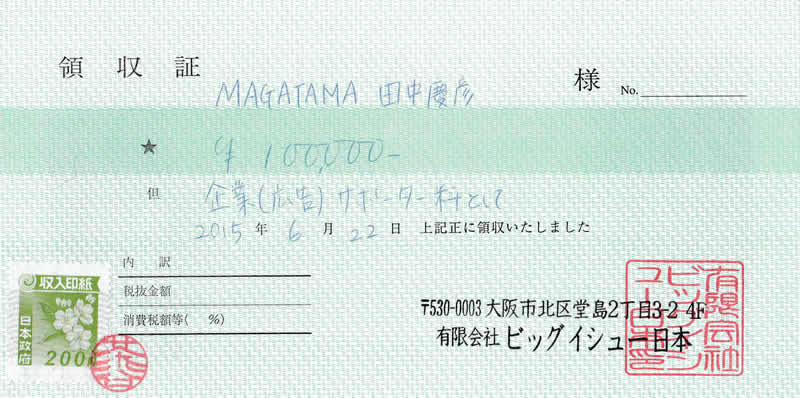 領収証
MAGATAMA 田中慶彦 様 No.
★ ¥100,000-
但 企業(広告)サポーター料として
2015年6月22日 上記正に領収いたしました
内訳
税抜金額
消費税額等( %)
収入印紙
日本政府
200円
〒530-0003 大阪市北区堂島2丁目3-2 4F
有限会社 ビッグイシュー日本
有限会社
ビッグイシ
ュー日本印